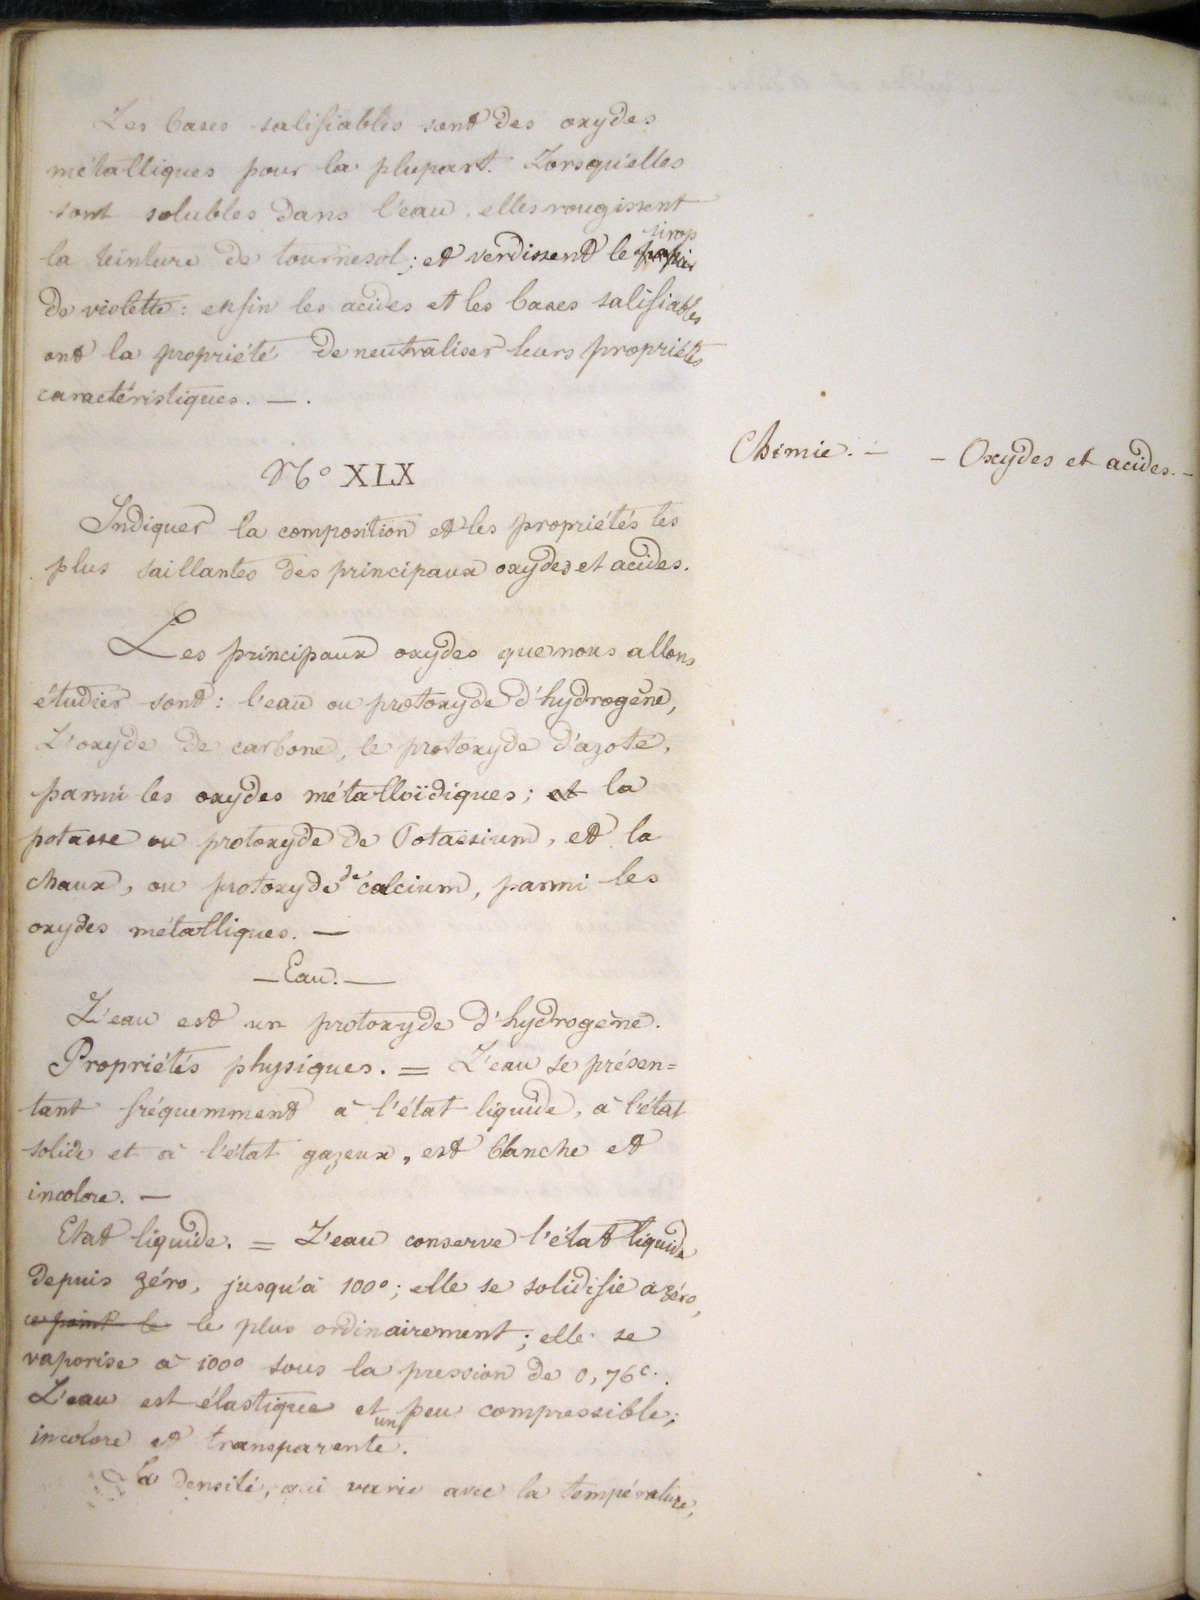 Les bases salifiables sont des oxydes
métalliques pour la plupart. Lorsqu'elles
sont solubles dans l'eau, elles rougissent
la teinture de tournesol; et verdissent le sirop
de violette: enfin les acides et les bases salifiables
ont la propriété de neutraliser leurs propriétés
caractéristiques. — .
N° XLX
Chimie. — — Oxydes et acides. —
Indiquer la composition et les propriétés les
plus saillantes des principaux oxydes et acides.
Les principaux oxydes que nous allons
étudier sont: l'eau ou protoxyde d'hydrogène,
L'oxyde de carbone, le protoxyde d'azote,
parmi les oxydes métalloïdiques; et la
potasse ou protoxyde de Potassium, et la
chaux, ou protoxyde de calcium, parmi les
oxydes métalliques. —
— Eau. —
L'eau est un protoxyde d'hydrogène.
Propriétés physiques. = L'eau se présen=
tant fréquemment à l'état liquide, à l'état
solide et à l'état gazeux, est blanche et
incolore. —
Etat liquide. = L'eau conserve l'état liquide
depuis zéro, jusqu'à 100°; elle se solidifie à zéro,
ce point le le plus ordinairement; elle se
vaporise à 100° sous la pression de 0,76c.
L'eau est élastique et un peu compressible;
incolore et transparente.
La densité, qui varie avec la température,